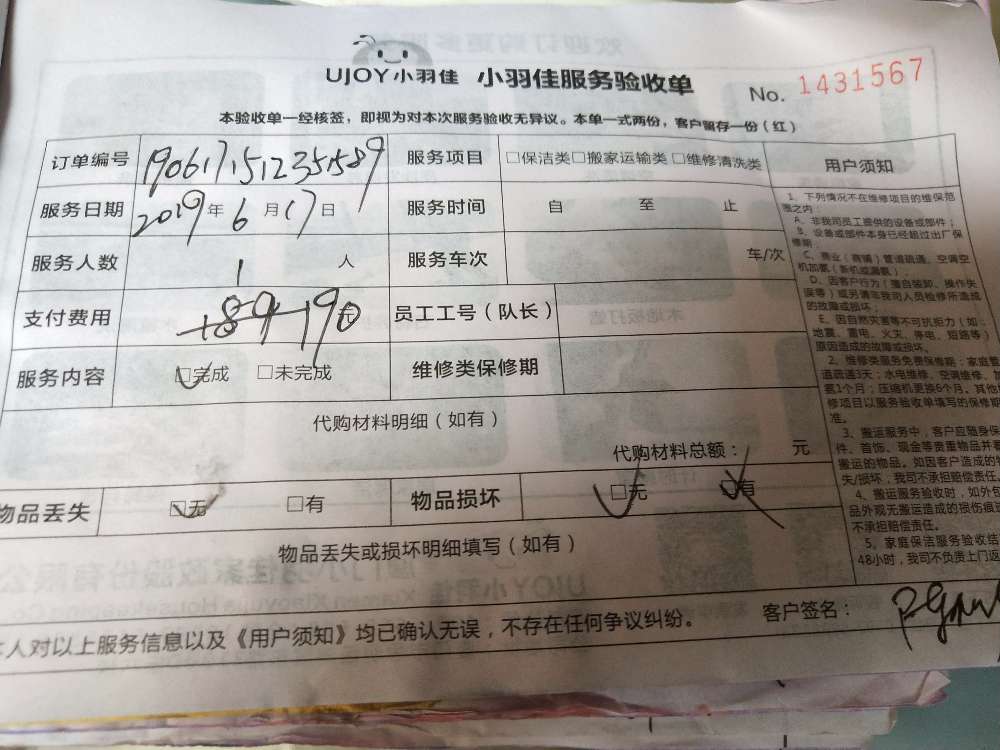 UJOY小羽佳 小羽佳服务验收单 No. 1431567
本验收单一经核签，即视为对本次服务验收无异议。本单一式两份，客户留存一份（红）
订单编号 1906171512351589 服务项目 □保洁类□搬家运输类□维修清洗类 用户须知
服务日期 2019年6月17日 服务时间 自 至 止
服务人数 1 人 服务车次 车/次
支付费用 190元 员工工号（队长）
服务内容 □完成 □未完成 维修类保修期
代购材料明细（如有）
代购材料总额： 元
物品丢失 □无 □有 物品损坏 □无 □有
物品丢失或损坏明细填写（如有）
人对以上服务信息以及《用户须知》均已确认无误，不存在任何争议纠纷。 客户签名：
1、下列情况不在维修项目的维保范
围之内：
A、非我司员工提供的设备或部件；
B、设备或部件本身已经超过出厂保
修期；
C、商业（商铺）管道疏通、空调空
机加氨（新机或漏氨）；
D、因客户行为（擅自装卸、操作失
误等）或另请非我司人员检修所造成
的故障或损坏；
E、因自然灾害等不可抗拒力（如：
地震、雷电、火灾、停电、短路等）
原因造成的故障或损坏。
2、维修类服务免费保修期：家庭管
道疏通3天；水电维修、空调维修、加
氨1个月；压缩机更换6个月。其他
修项目以服务验收单填写的保修期
准。
3、搬运服务中，客户应随身保
件、首饰、现金等贵重物品并
搬运的物品。如因客户造成的物
失/损坏，我司不承担赔偿责任。
4、搬运服务验收时，如外包
品外观无搬运造成的损伤痕
不承担赔偿责任。
5、家庭保洁服务验收结
48小时，我司不负责上门返